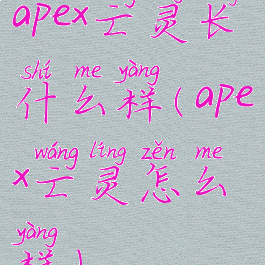 apex亡灵长
shí me yàng
什么样(ape
wáng líng zěn me
x亡灵怎么
yàng
样)